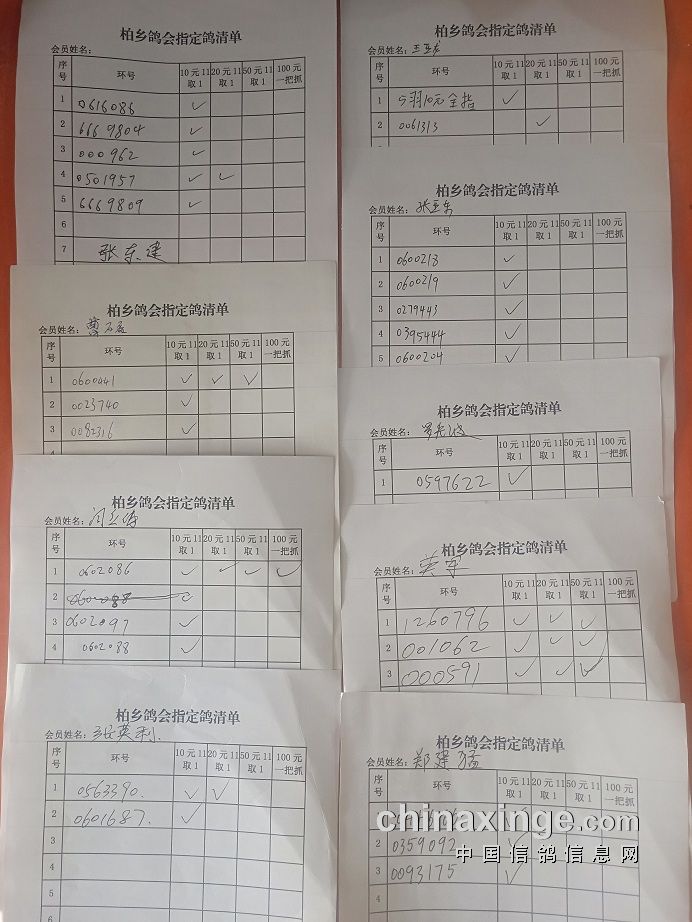 柏乡鸽会指定鸽清单
会员姓名：
序号 环号 10元11取1 20元11取1 50元11取1 100元一把抓
1 0616086 ✓
2 6669804 ✓
3 000962 ✓
4 0501957 ✓ ✓
5 6669809 ✓
6
7 张东建
柏乡鸽会指定鸽清单
会员姓名：王亚龙
序号 环号 10元11取1 20元11取1 50元11取1 100元一把抓
1 5羽10元全指 ✓
2 0061313 ✓
柏乡鸽会指定鸽清单
会员姓名：张亚东
序号 环号 10元11取1 20元11取1 50元11取1 100元一把抓
1 0600213 ✓
2 0600219 ✓
3 0279443 ✓
4 0395444 ✓
5 0600204 ✓
柏乡鸽会指定鸽清单
会员姓名：曹
序号 环号 10元11取1 20元11取1 50元11取1 100元一把抓
1 0600441 ✓ ✓ ✓
2 0023740 ✓
3 0082316 ✓
柏乡鸽会指定鸽清单
会员姓名：
序号 环号 10元11取1 20元11取1 50元11取1 100元一把抓
1 0597622 ✓
柏乡鸽会指定鸽清单
会员姓名：
序号 环号 10元11取1 20元11取1 50元11取1 100元一把抓
1 0602086 ✓ ✓ ✓ ✓
2
3 0602097 ✓
4 0602088 ✓
柏乡鸽会指定鸽清单
会员姓名：英军
序号 环号 10元11取1 20元11取1 50元11取1 100元一把抓
1 1260796 ✓ ✓ ✓
2 001062 ✓ ✓ ✓
3 000591 ✓ ✓ ✓
柏乡鸽会指定鸽清单
会员姓名：张英利
序号 环号 10元11取1 20元11取1 50元11取1 100元一把抓
1 0563390. ✓ ✓
2 0601687. ✓
3
4
5
6
柏乡鸽会指定鸽清单
会员姓名：郑建猛
序号 环号 10元11取1 20元11取1 50元11取1 100元一把抓
1
2 0359092 ✓
3 0093175 ✓
4
chinaxinge.com
中国信鸽信息网